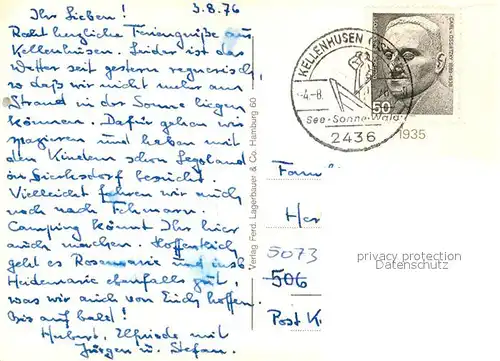 3.8.76
Ihr Lieben!
Recht herzliche Feriengrüße aus
Kellenhusen. Leider ist das
Wetter seit gestern regnerisch
so daß wir nicht mehr am
Strand in der Sonne liegen
können. Dafür gehen wir
spazieren und haben mit
den Kindern schon Legoland
in Sierksdorf besucht.
Vielleicht fahren wir auch
noch nach Fehmarn.
Camping könnt Ihr hier
auch machen. Hoffentlich
geht es Rosemarie und
Heidemarie ebenfalls gut,
was wir auch von Euch hoffen.
Bis auf bald!
Hubert, Elfriede mit
Jürgen u. Stefan.
Verlag Ferd. Lagerbauer & Co. Hamburg 60
KELLENHUSEN
-4.-8.
See-Sonne-Wald
2436
50
1935
Fam
Her
5073
506
Post K
privacy protection
Datenschutz